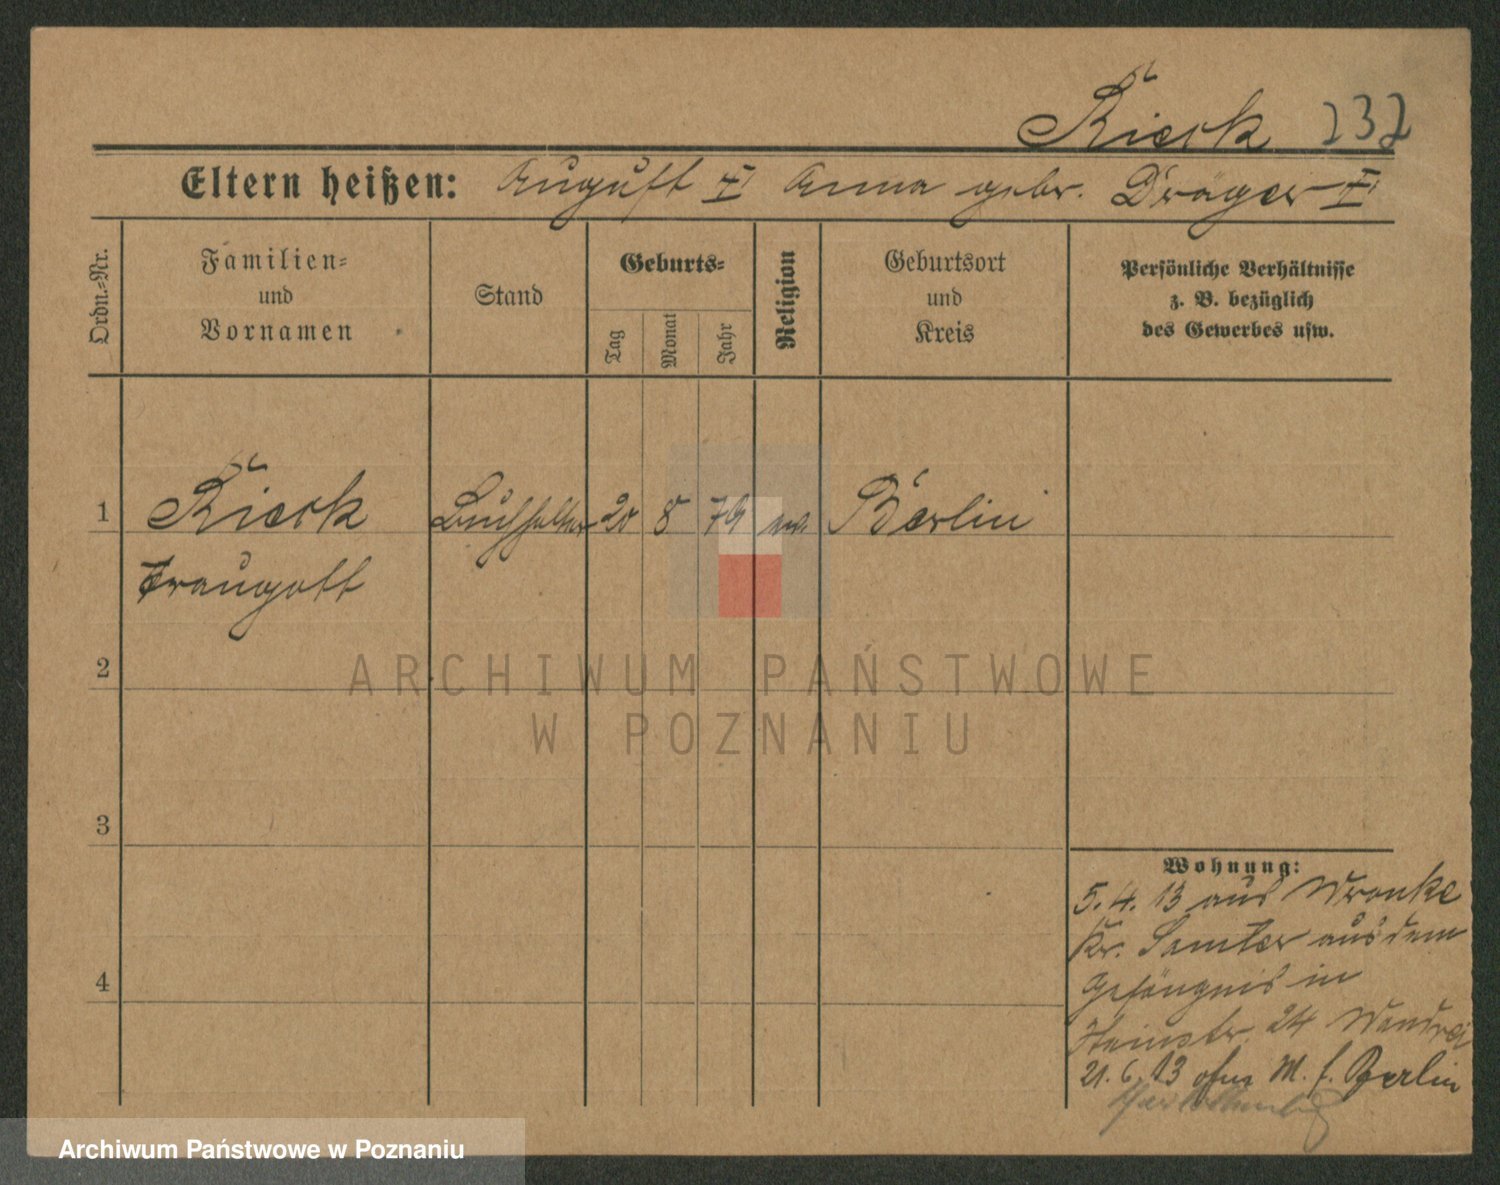 Kieck 232
Eltern heißen: August † Anna gebr. Dräger †
Ordn.-Nr.
Familien-
und
Vornamen
Stand
Geburts-
Tag
Monat
Jahr
Religion
Geburtsort
und
Kreis
Persönliche Verhältnisse
z. B. bezüglich
des Gewerbes usw.
1 Kieck Buchhalter 20 8 79 ev. Berlin
Traugott
2
3
4
Wohnung:
5. 4. 13 aus Wronke
Kr. Samter aus dem
Gefängnis in
24
21. 6. 13 Berlin
ARCHIWUM PAŃSTWOWE
W POZNANIU
Archiwum Państwowe w Poznaniu